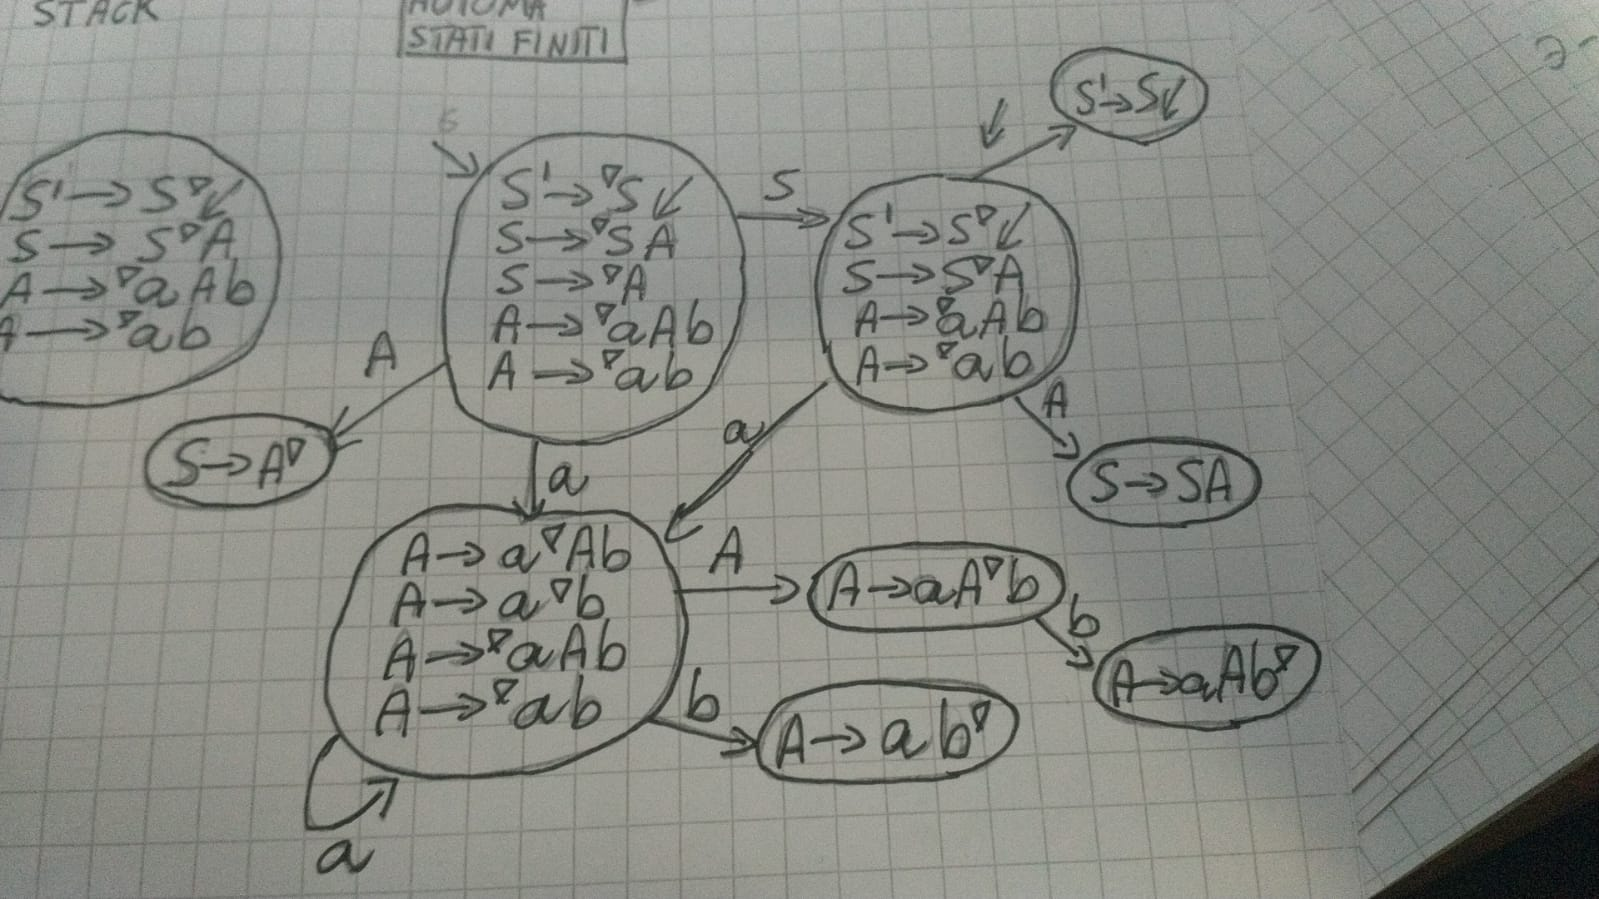 STACK
AUTOMA
STATI FINITI
S'→S↙
↙
S'→S▽↙
S→S▽A
A→▽aAb
A→▽ab
S'→▽S↙
S→▽SA
S→▽A
A→▽aAb
A→▽ab
S
S'→S▽↙
S→S▽A
A→▽aAb
A→▽ab
A
S→A▽
a
a
A
S→SA
A→a▽Ab
A→a▽b
A→▽aAb
A→▽ab
A
A→aA▽b
b
A→aAb▽
b
A→ab▽
a